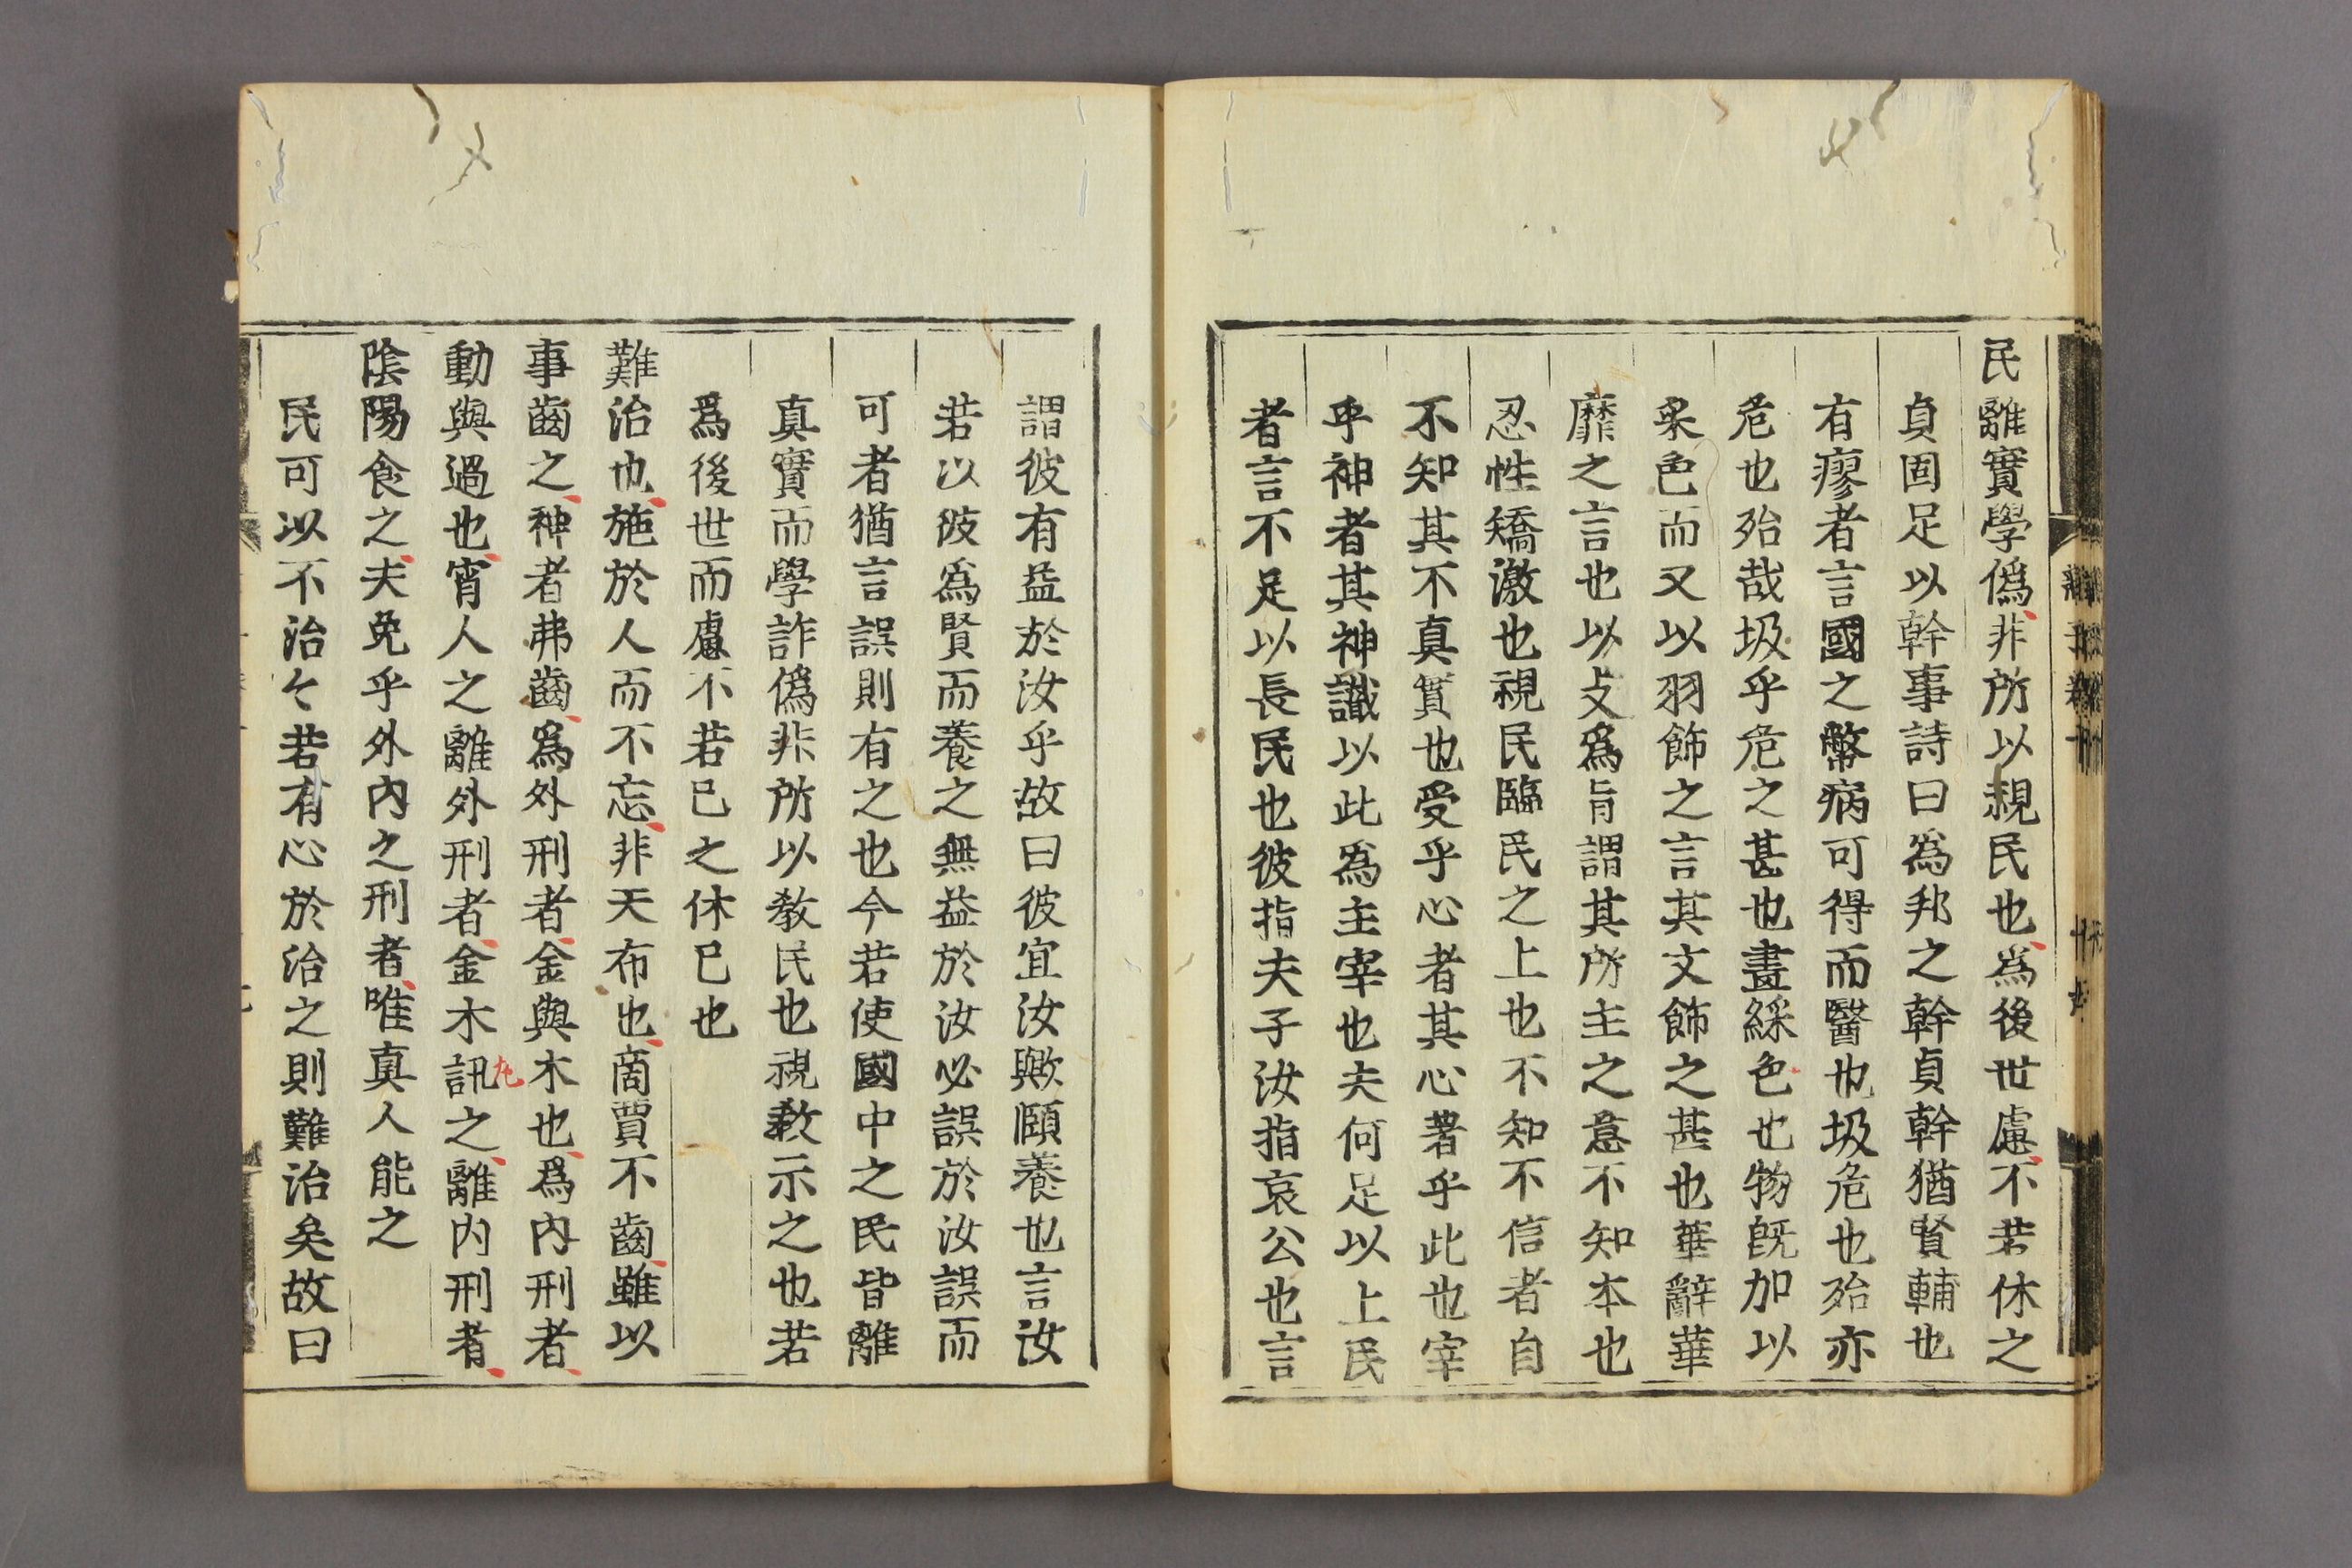 民離實學僞非所以視民也爲後世慮不若休之
貞固足以幹事詩曰爲邦之幹貞幹猶賢輔也
有瘳者言國之幣病可得而醫也圾危也殆亦
危也殆哉圾乎危之甚也畫綵色也物旣加以
采色而又以羽飾之言其文飾之甚也華辭華
靡之言也以支爲旨謂其所主之意不知本也
忍性矯激也視民臨民之上也不知不信者自
不知其不真實也受乎心者其心著乎此也宰
乎神者其神識以此爲主宰也夫何足以上民
者言不足以長民也彼指夫子汝指哀公也言
謂彼有益於汝乎故曰彼宜汝歟頤養也言汝
若以彼爲賢而養之無益於汝必誤於汝誤而
可者猶言誤則有之也今若使國中之民皆離
真實而學詐僞非所以敎民也視敎示之也若
爲後世而慮不若已之休已也
難治也施於人而不忘非天布也啇賈不齒雖以
事齒之神者弗齒爲外刑者金與木也爲內刑者
動與過也宵人之離外刑者金木訊之離內刑者
陰陽食之夫免乎外內之刑者唯真人能之
民可以不治々若有心於治之則難治矣故曰